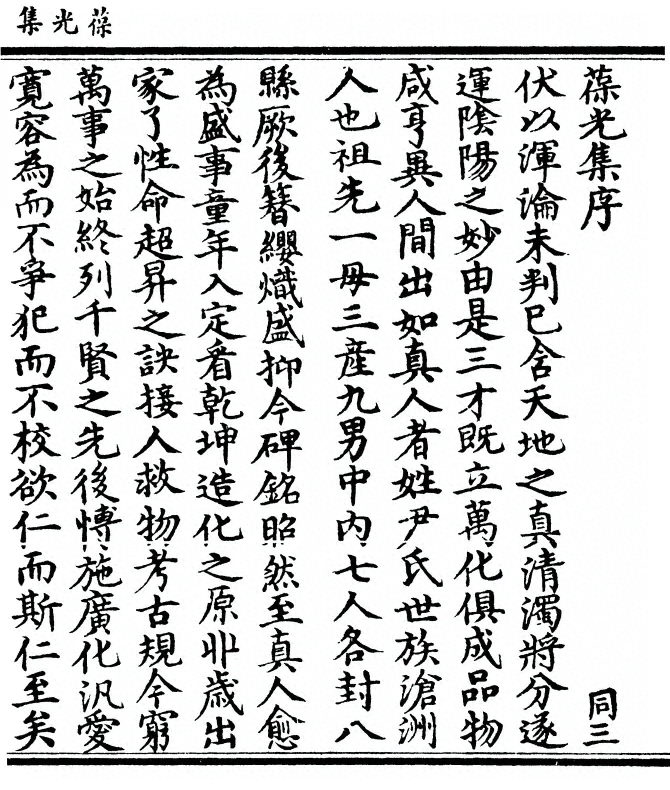 葆光集
葆光集序 同三
伏以渾淪未判已含天地之真清濁將分遂
運陰陽之妙由是三才既立萬化俱成品物
咸亨異人間出如真人者姓尹氏世族滄洲
人也祖先一毋三產九男中內七人各封八
縣厥後簪纓熾盛抑今碑銘昭然至真人愈
為盛事童年入定看乾坤造化之原丱歲出
家了性命超昇之訣接人救物考古規今窮
萬事之始終列千賢之先後愽施廣化汎愛
寬容為而不爭犯而不校欲仁而斯仁至矣